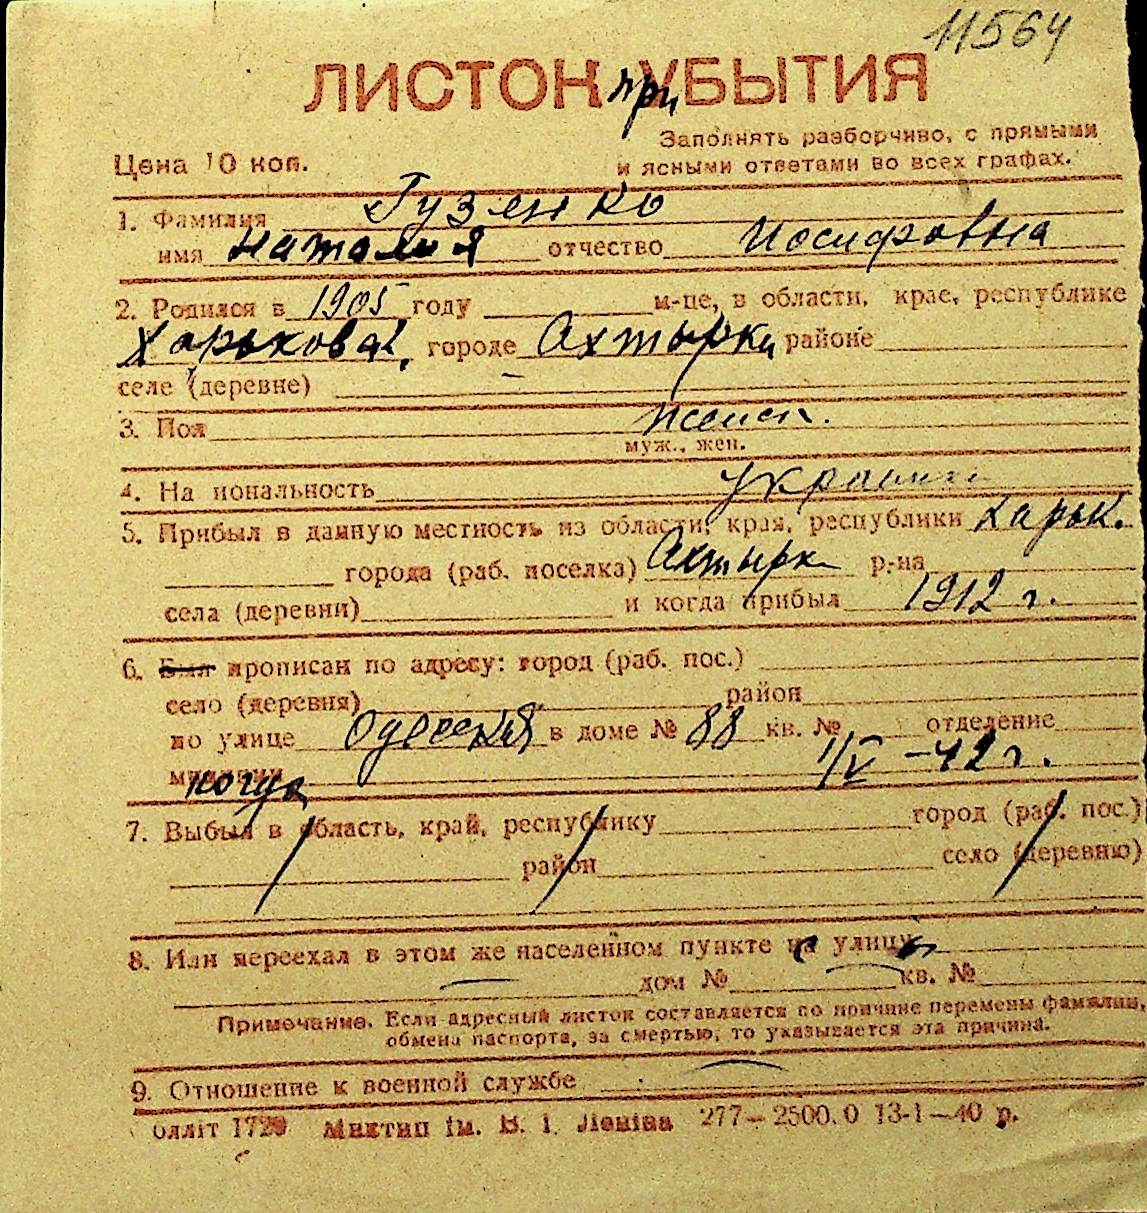 11564
ЛИСТОК при УБЫТИЯ
Заполнять разборчиво, с прямыми
Цена 10 коп. и ясными ответами во всех графах.
1. Фамилия Гузенко
имя Наталия отчество Иосифовна
2. Родился в 1905 году м-це, в области, крае, республике
Харьковск, городе Ахтырка районе
селе (деревне)
3. Пол женск.
муж., жен.
4. На иональность украин
5. Прибыл в данную местность из области, края, республики Харьк.
города (раб. поселка) Ахтырка р-на
села (деревни) и когда прибыл 1912 г.
6. Был прописан по адресу: город (раб. пос.)
село (деревня) район
по улице Одесская в доме № 88 кв. № отделение
милиции когда 1/V - 42 г.
7. Выбыл в область, край, республику город (раб. пос.)
район село (деревню)
8. Или переехал в этом же населенном пункте на улицу
дом № кв. №
Примечание. Если адресный листок составляется по причине перемены фамилии,
обмена паспорта, за смертью, то указывается эта причина.
9. Отношение к военной службе
олліт 1729 Миктип ім. В. І. Леніна 277—2500.0 13-1—40 р.